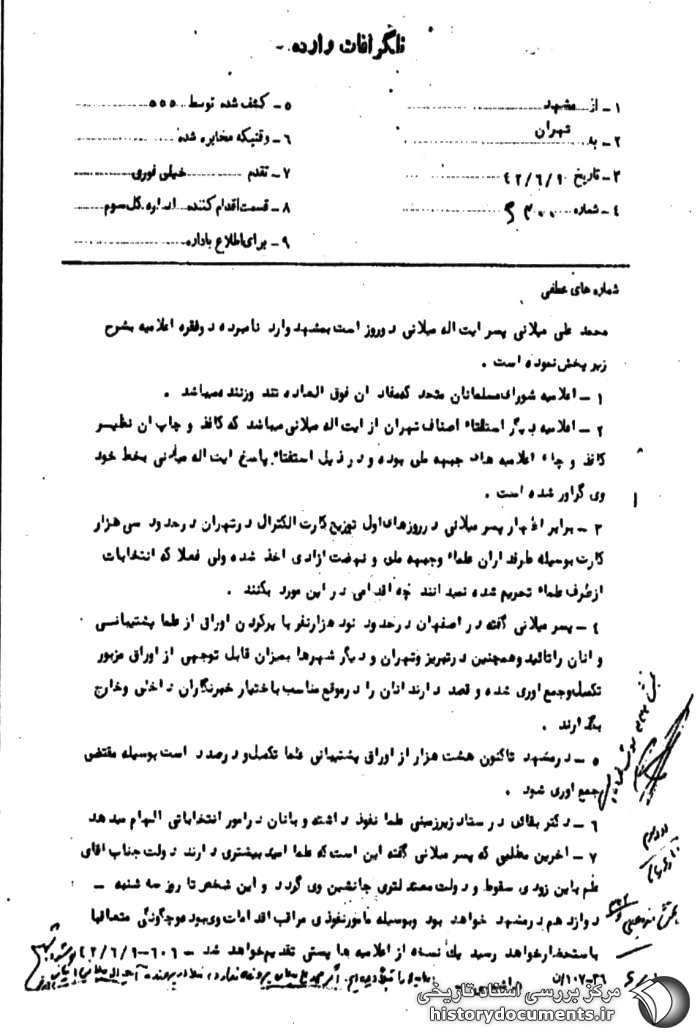 تلگرافات وارده
۱ – از مشهد
۲ – به تهران
۳ – تاریخ ۴۲/۶/۹
۴ – شماره
۵ – کشف شده توسط ۵۵۵
۶ – وقتیکه مخابره شده
۷ – تقدم خیلی فوری
۸ – قسمت اقدام کننده اداره کل سوم
۹ – برای اطلاع باداره
شماره های عطفی
محمد علی میلانی پسر ایت اله میلانی دوروز است بمشهد وارد نامبرده دوفقره اعلامیه بشرح
زیر پخش نموده است .
۱ – اعلامیه شورای مسلمانان متحد که مفاد ان فوق العاده تند وزننده میباشد .
۲ – اعلامیه دیگر استفتاء اصناف تهران از ایت اله میلانی میباشد که کاغذ و چاپ ان نظیر
کاغذ و چاپ اعلامیه های جبهه ملی بوده و در ذیل استفتاء پاسخ ایت اله میلانی بخط خود
وی گراور شده است .
۳ – برابر اظهار پسر میلانی در روزهای اول توزیع کارت الکترال در تهران در حدود سی هزار
کارت بوسیله طرفداران علماء وجبهه ملی و نهضت ازادی اخذ شده ولی فعلا که انتخابات
از طرف علماء تحریم شده نمیدانند چه اقدامی در این مورد بکنند .
۴ – پسر میلانی گفته در اصفهان در حدود نود هزار نفر با پرکردن اوراق از علما پشتیبانی
و انان راتائید وهمچنین در تبریز وتهران و دیگر شهرها بمیزان قابل توجهی از اوراق مزبور
تکمیل وجمع اوری شده و قصد دارند انان را در موقع مناسب باختیار خبرنگاران داخلی وخارج
بگذارند .
۵ – در مشهد تاکنون هشت هزار از اوراق پشتیبانی علما تکمیل و در صدد است بوسیله مقتضی
جمع اوری شود .
۶ – دکتر بقائی در ستاد زیرزمینی علما نفوذ داشته و بانان در امور انتخاباتی الهام میدهد
۷ – اخرین مطلبی که پسر میلانی گفته این است که علما امید بیشتری دارند دولت جناب اقای
علم باین زودی سقوط و دولت معتدلتری جانشین وی گردد و این شخص تا روز سه شنبه –
دوازدهم در مشهد خواهد بود وبوسیله مامور نفوذی مراقب اقدامات وی بود موچگونگی متعاقبا
باستحضار خواهد رسید یک نسخه از اعلامیه ها پستی تقدیم خواهد شد – ۶۰۱–۴۲/۶/۹
۱۰۷–۳۶/ن
مرکز بررسی اسناد تاریخی
historydocuments.ir